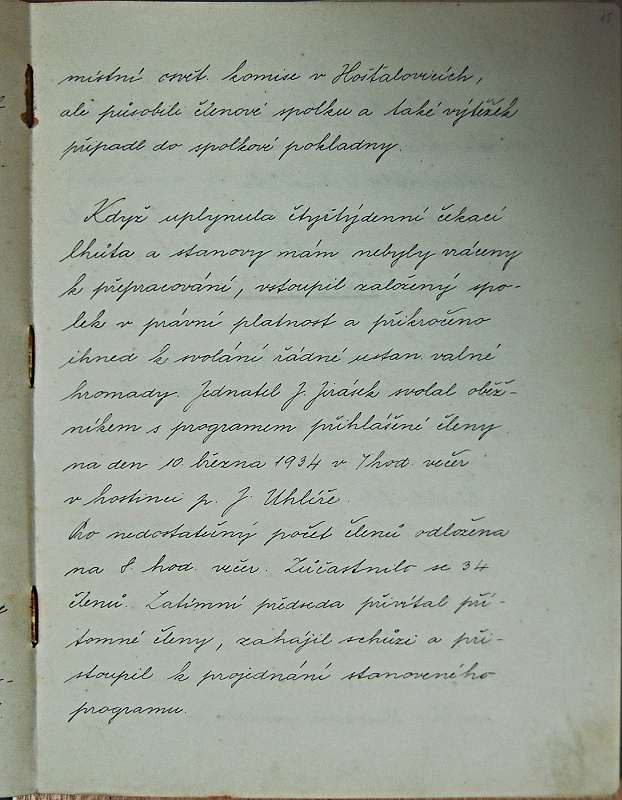 15
místní osvět. komise v Hošťalovicích,
ale působili členové spolku a také výtěžek
připadl do spolkové pokladny.
Když uplynula čtyřtýdenní čekací
lhůta a stanovy nám nebyly vráceny
k přepracování, vstoupil založený spo-
lek v právní platnost a přikročeno
ihned k svolání řádné ustan. valné
hromady. Jednatel J. Jirásek svolal oběž-
níkem s programem přihlášené členy
na den 10. března 1934 v 7 hod. večer
v hostinci p. J. Uhlíře.
Pro nedostatečný počet členů odložena
na 8. hod. večer. Zúčastnilo se 34
členů. Zatímní předseda přivítal pří-
tomné členy, zahájil schůzi a při-
stoupil k projednání stanoveného
programu.